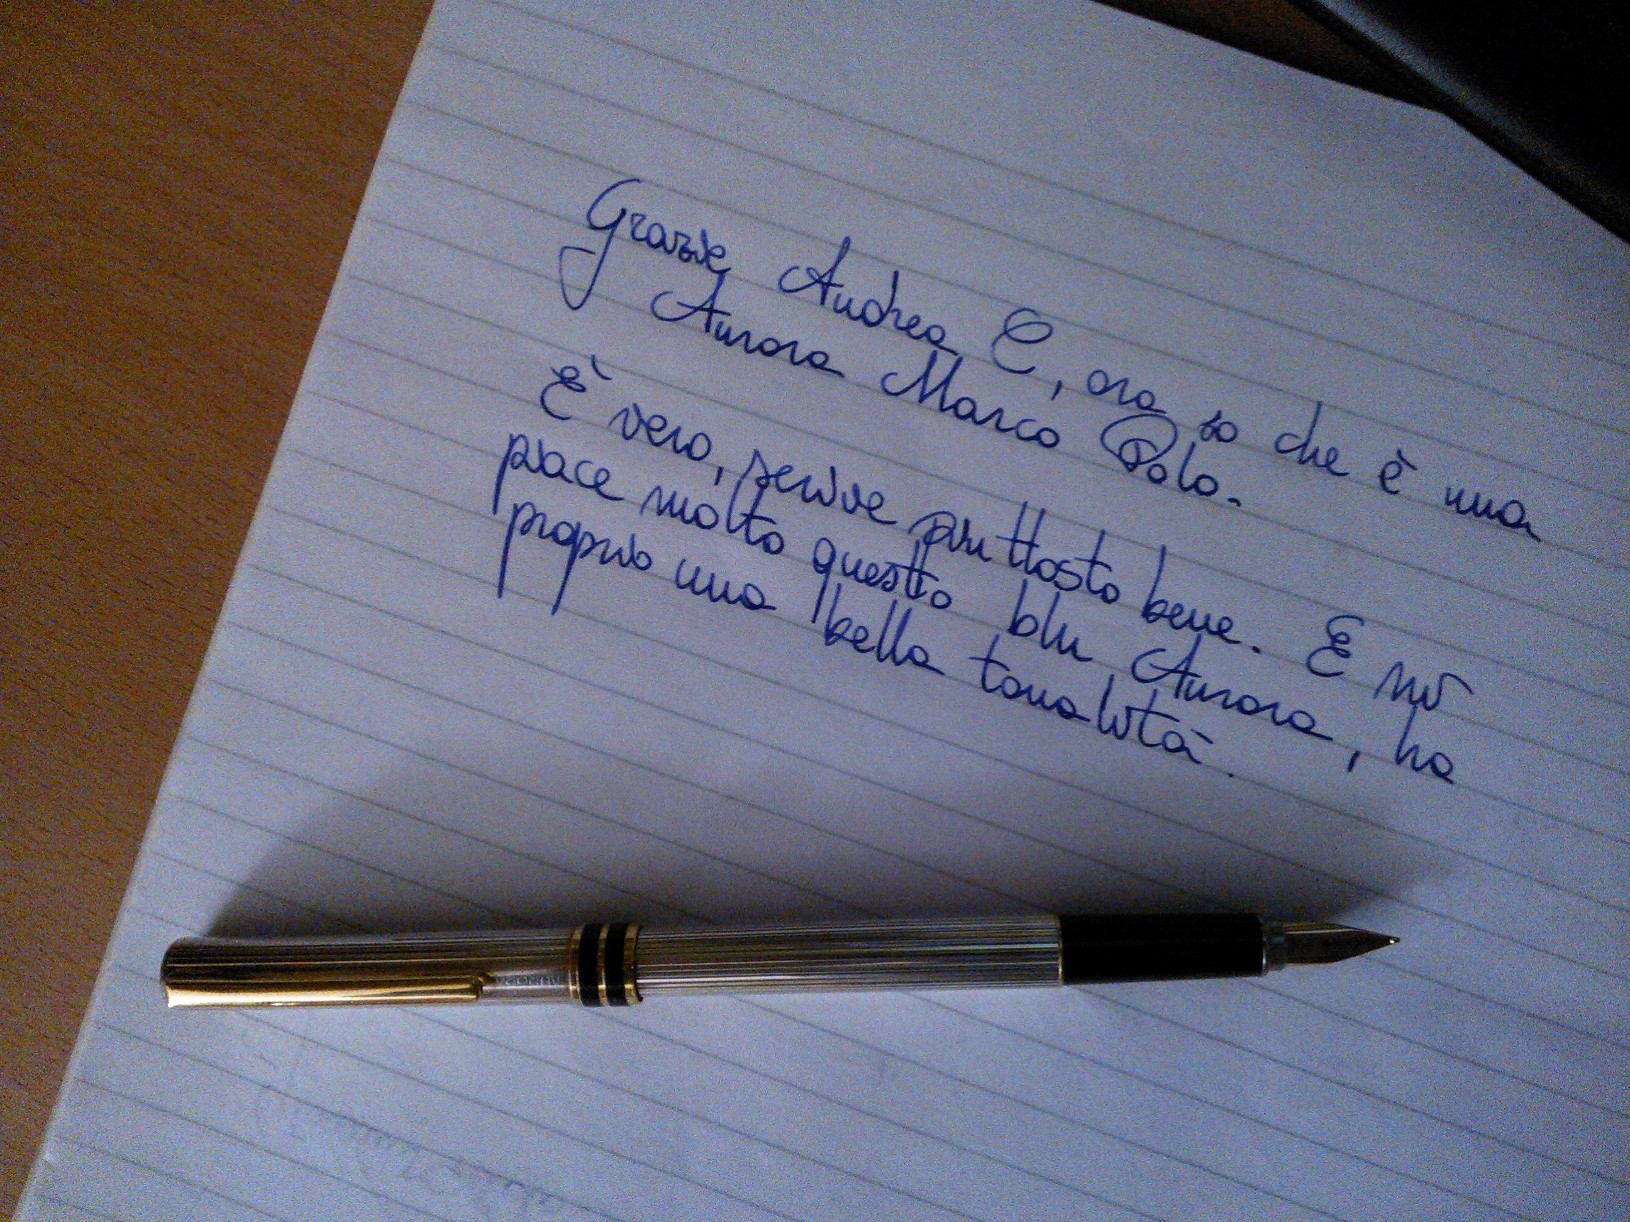 Grazie Andrea C, ora so che è una
Aurora Marco Polo.
È vero, scrive piuttosto bene. E mi
piace molto questo blu Aurora, ha
proprio una bella tonalità.
AURORA